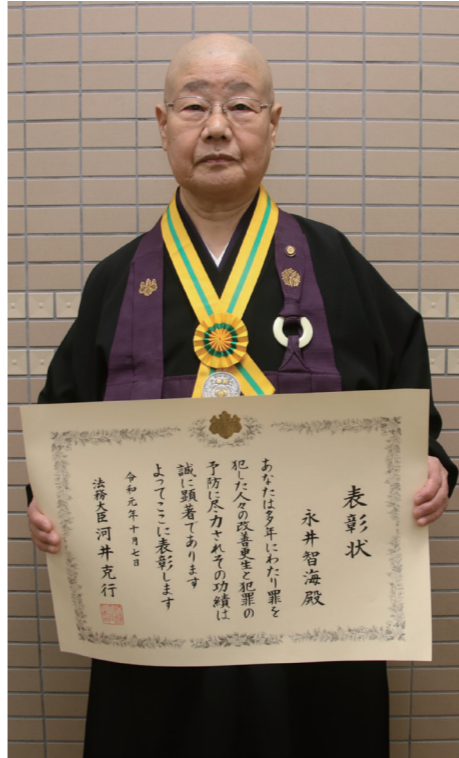 表彰状
永井智海殿
あなたは多年にわたり罪を
犯した人々の改善更生と犯罪の
予防に尽力されその功績は
誠に顕著であります
よってここに表彰します
令和元年十月七日
法務大臣河井克行